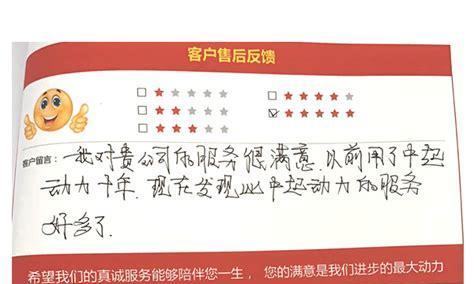 客户售后反馈
客户留言：我对贵公司的服务很满意.以前用了中起
动力十年.现在发现比中起动力的服务
好多了.
希望我们的真诚服务能够陪伴您一生， 您的满意是我们进步的最大动力